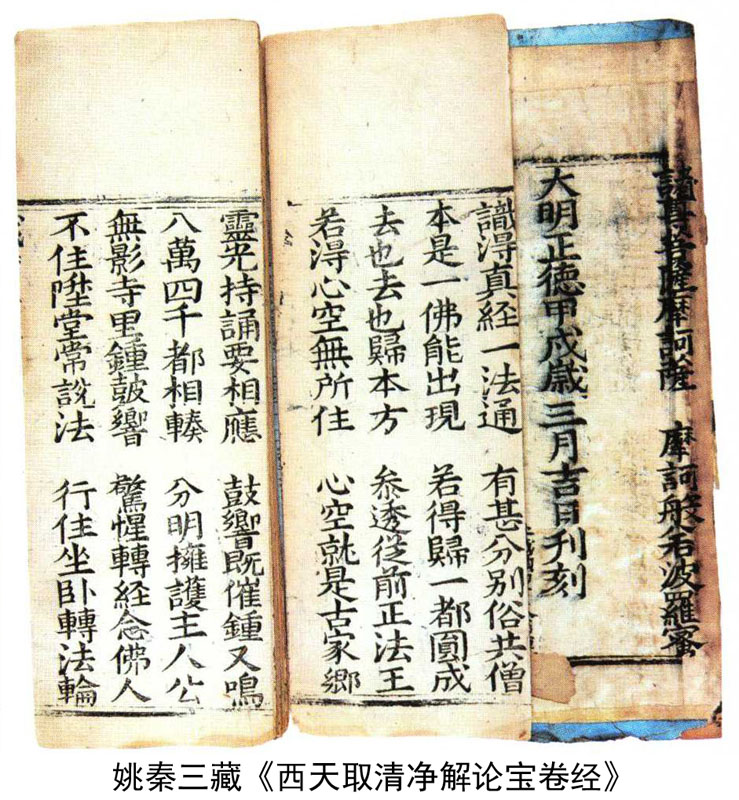 諸真菩薩摩訶薩 摩訶般若波羅蜜
大明正德甲戌歲三月吉日刋刻
識淂真経一法通 有甚分别俗共僧
本是一佛能出現 若得歸一都圓成
去也去也歸本方 叅透從前正法王
若得心空無所住 心空就是古家鄉
靈光持誦要相應 鼓響既催鍾又鳴
八萬四千都相輳 分明擁護主人公
無影寺里鍾皷響 驚惺轉経念佛人
不住陞堂常說法 行住坐卧轉法輪
姚秦三藏《西天取清净解论宝卷经》